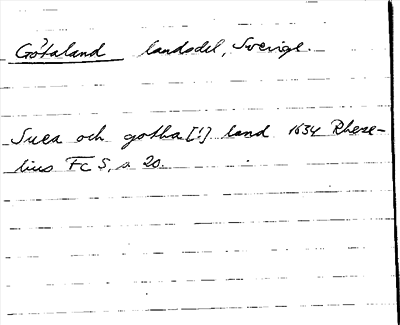 Götaland landsdel, Sverige.
Svea och gotha [!] land 1634 Rhese-
lius Fc 5, s 20.